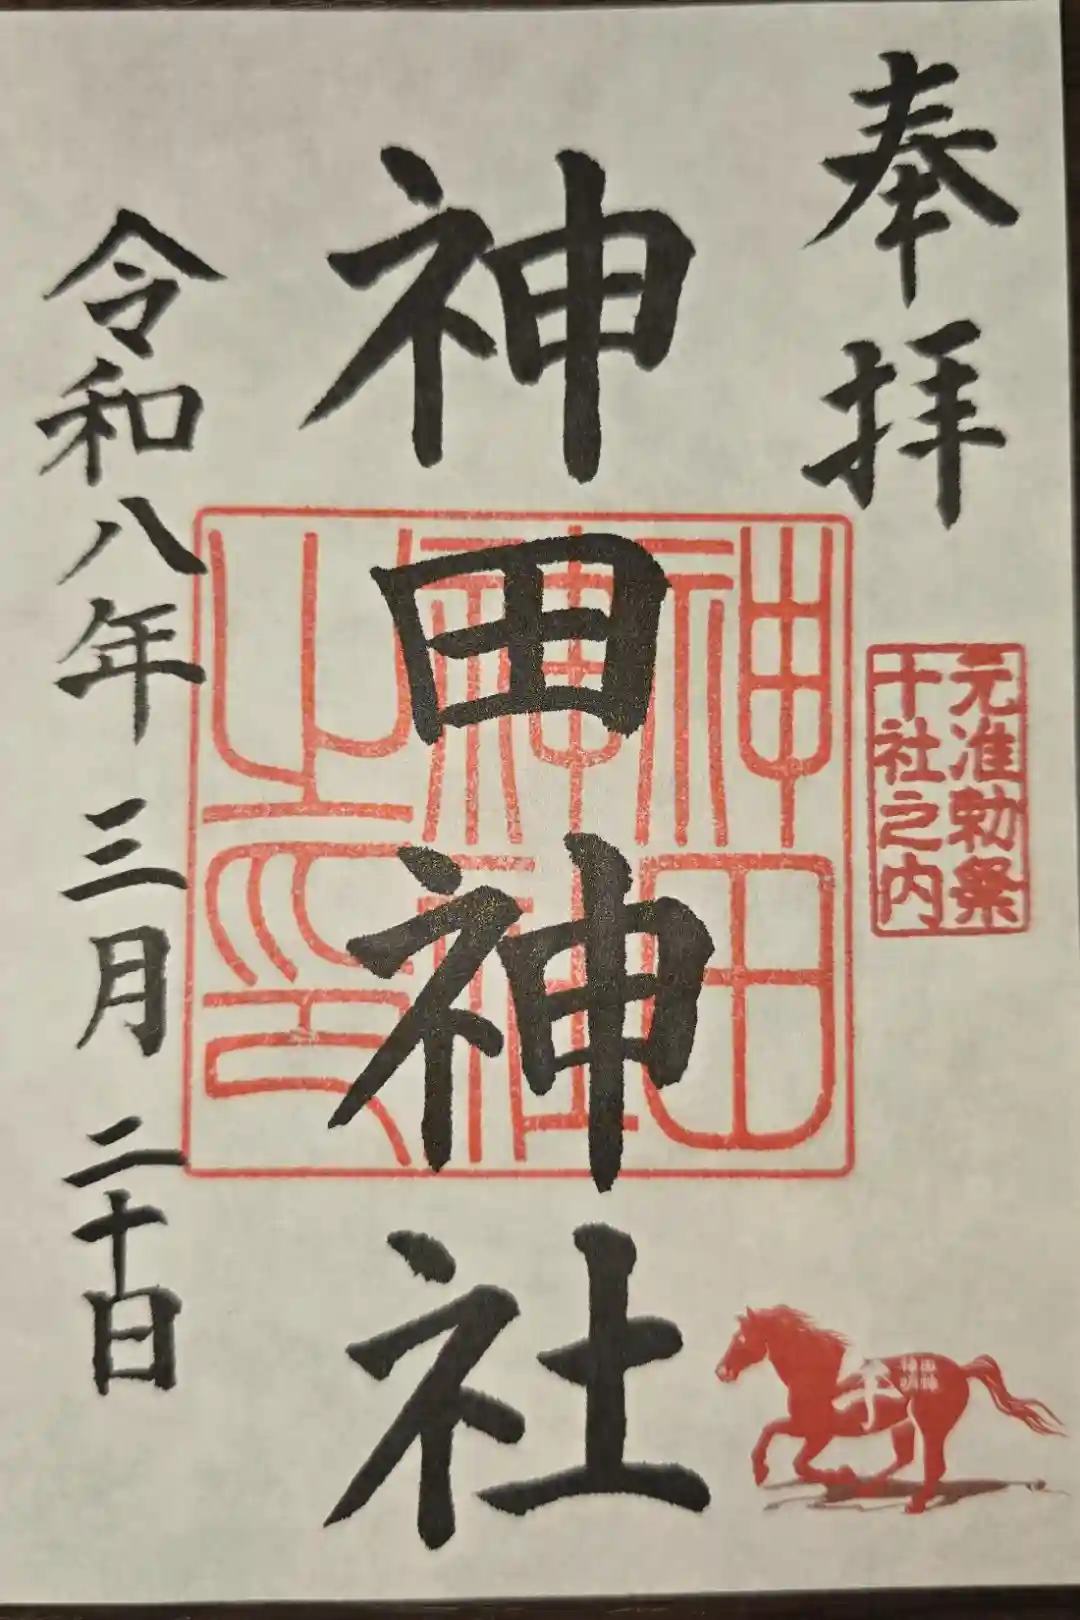 奉拝
元准勅祭
十社之内
神田神社
神田
神社
之印
午
令和八年三月二十日